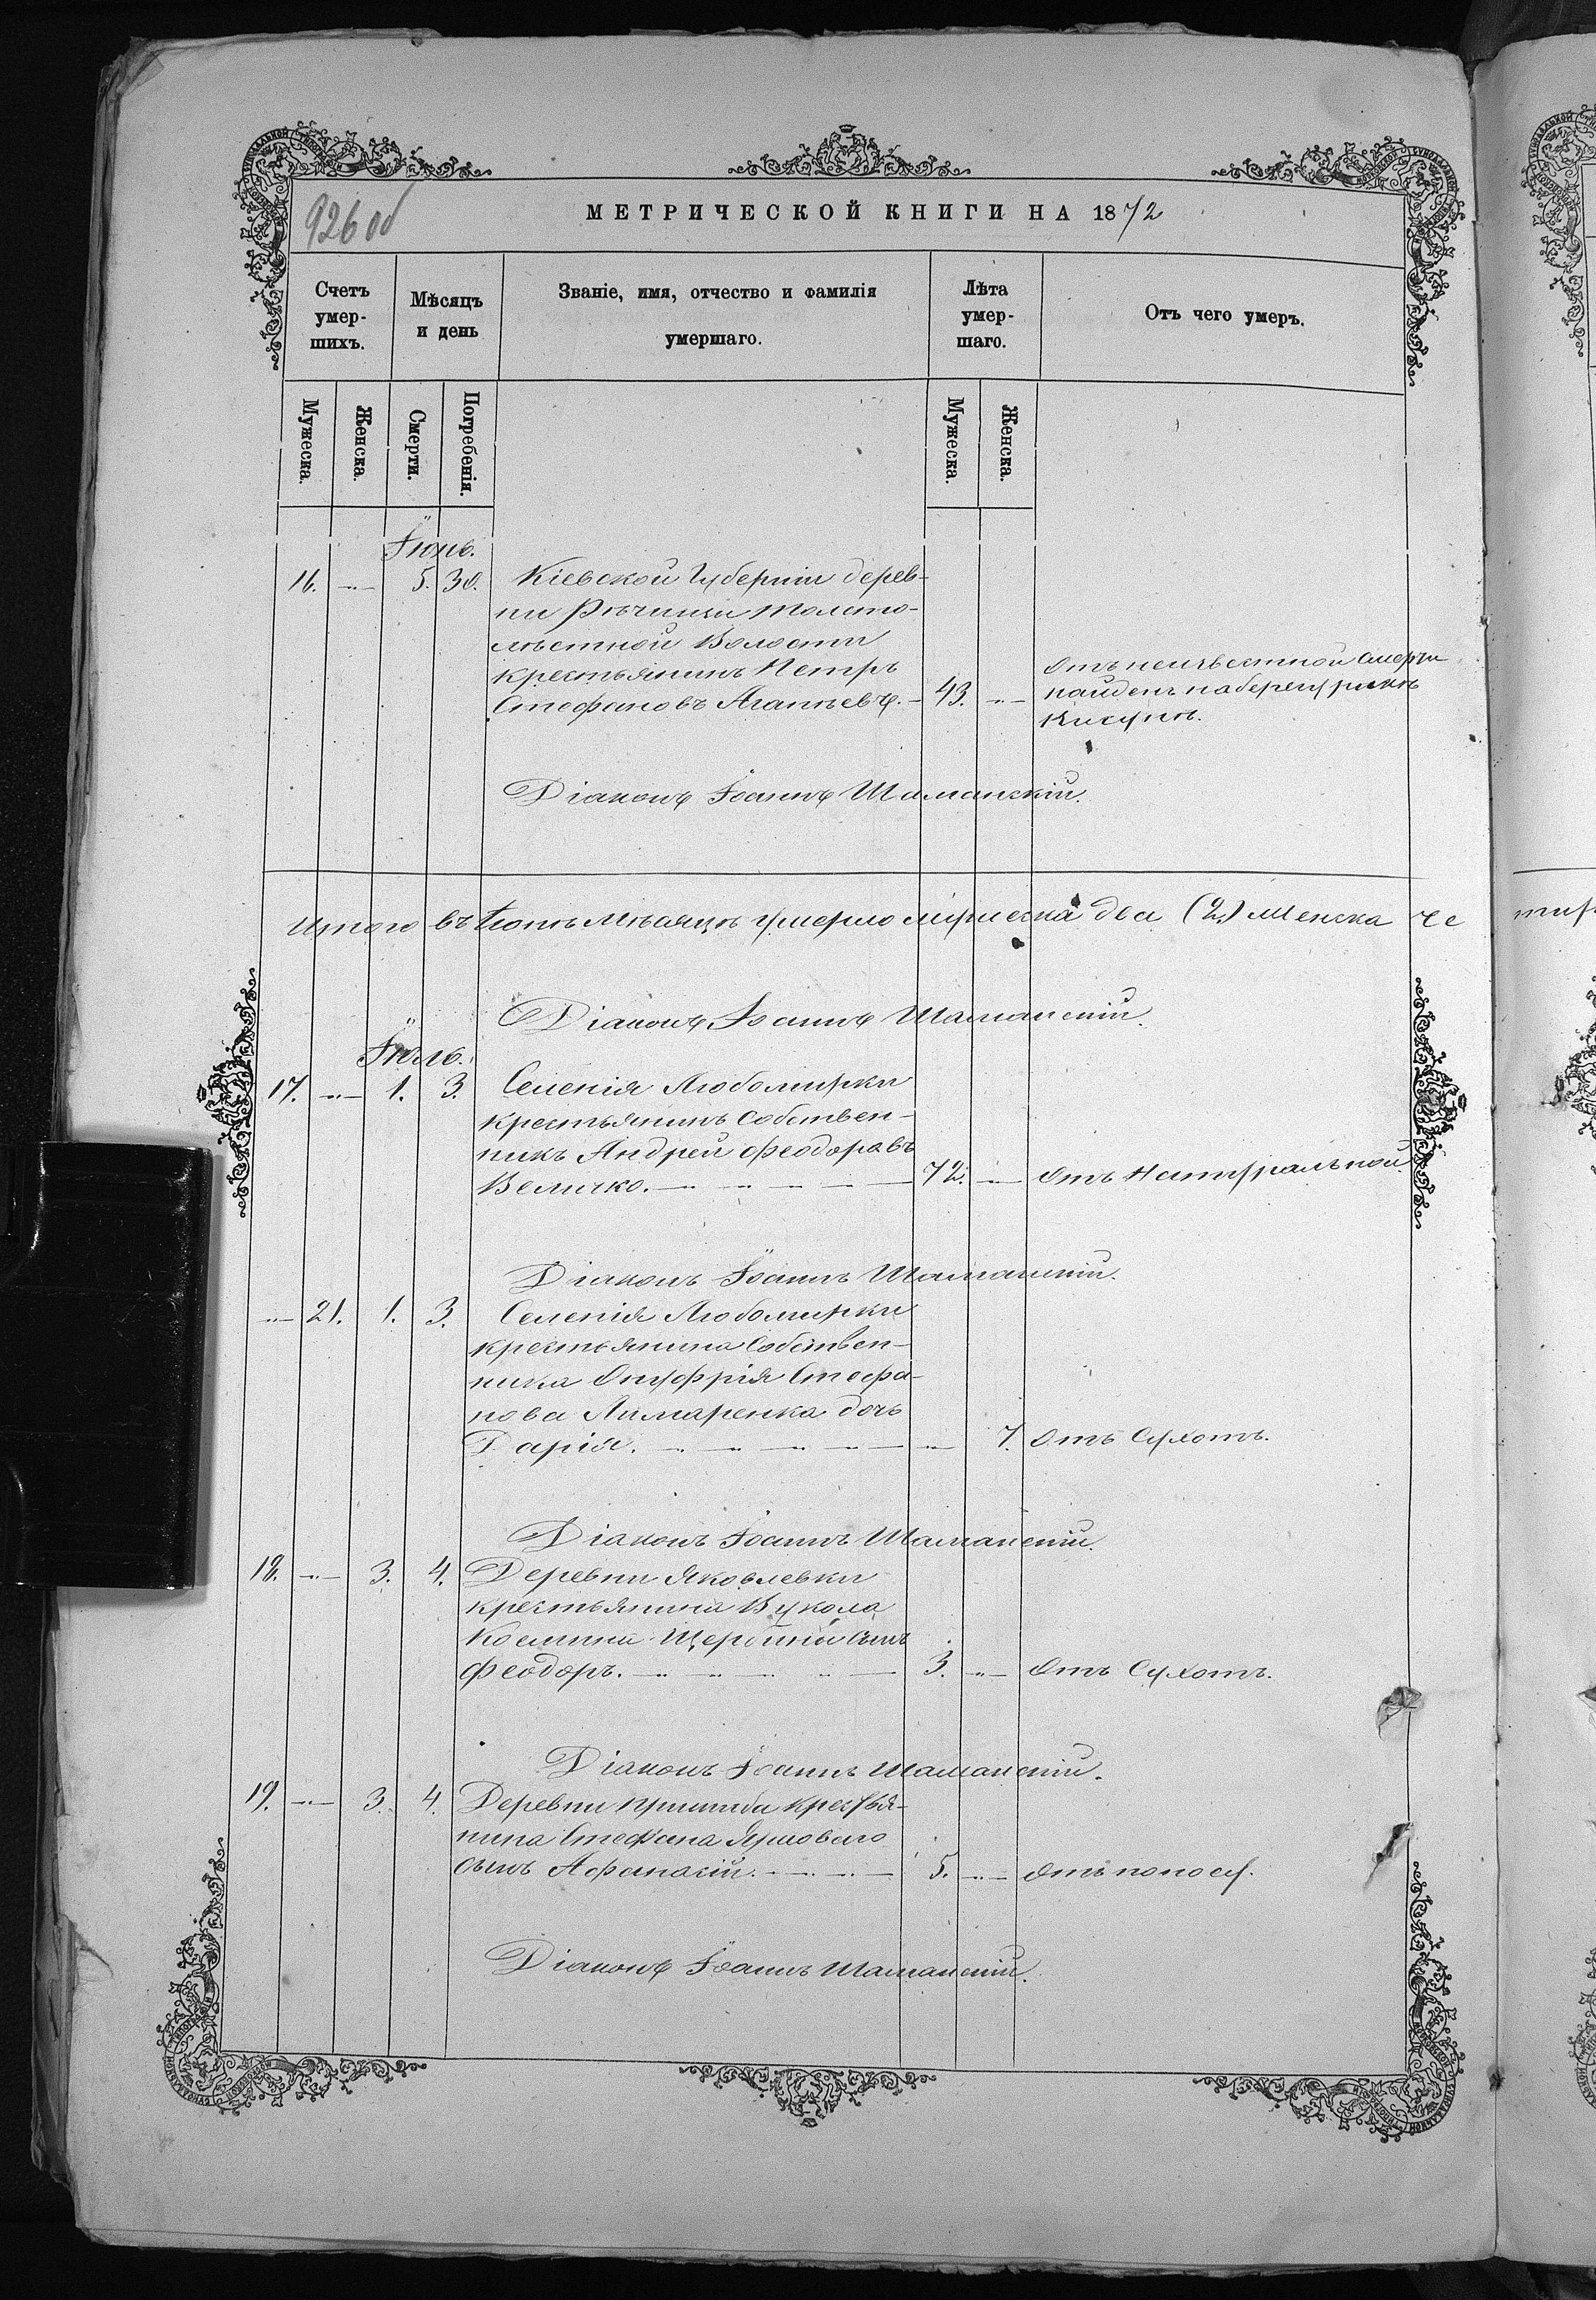 926 об
МЕТРИЧЕСКОЙ КНИГИ НА 1872
Счетъ умер-шихъ.
Мѣсяцъ и день
Званіе, имя, отчество и фамилія умершаго.
Лѣта умер-шаго.
Отъ чего умеръ.
Мужеска.
Женска.
Смерти.
Погребенія.
Мужеска.
Женска.
Іюнь.
16. -"- 5. 30. Кіевской Губерніи дерев-
ни Рѣчицы Толсто-
лѣсткой Волости
крестьянинъ Петръ
Стефановъ Агапѣевъ. - 43. -"-
отъ неизвѣстной смерти
найденъ на берегу рѣкѣ
Діаконъ Іоаннъ Шаманскій.
Итого въ Іюнѣ мѣсяцѣ умерло мужеска два (2) женска че
Діаконъ Іоаннъ Шаманскій.
Іюль.
17. -"- 1. 3. Селенія Любомирки
крестьянинъ собствен-
никъ Андрей Феодоровъ
Величко. 72. -"- Отъ Натуральной
Діаконъ Іоаннъ Шаманскій.
-"- 21. 1. 3. Селенія Любомирки
крестьянина Собствен-
ника Онуфрія Стефа-
нова Лимаренка дочь
Дарія. -"- 7. Отъ Сухотъ.
Діаконъ Іоаннъ Шаманскій.
18. -"- 3. 4. Деревни Яковлевки
крестьянина Вукола
Козмина Щербины сынъ
Феодоръ. 3. -"- Отъ Сухотъ.
Діаконъ Іоаннъ Шаманскій.
19. -"- 3. 4. Деревни Пришиба крестья-
нина Стефана Ярмоваго
сынъ Афанасій. 5. -"- Отъ поносу.
Діаконъ Іоаннъ Шаманскій.